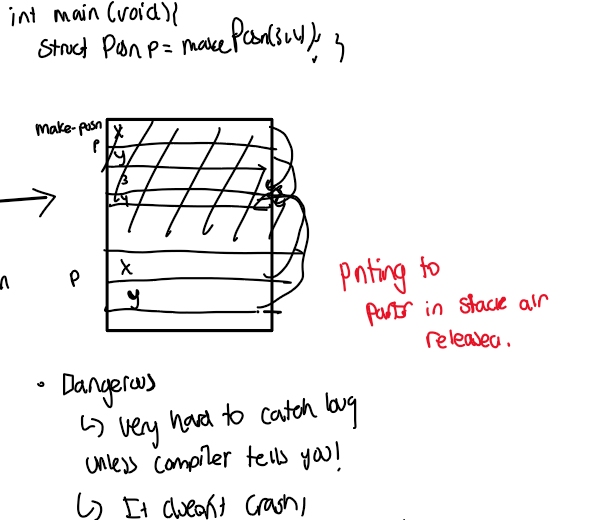 int main (void){
struct Posn p = makePosn(3,4); }
make-posn
x
p
y
3
4
n
p
x
y
Pnting to
in stack
released.
• Dangerous
↳ very hard to catch bug
unless compiler tells you!
↳ It doesn't crash,